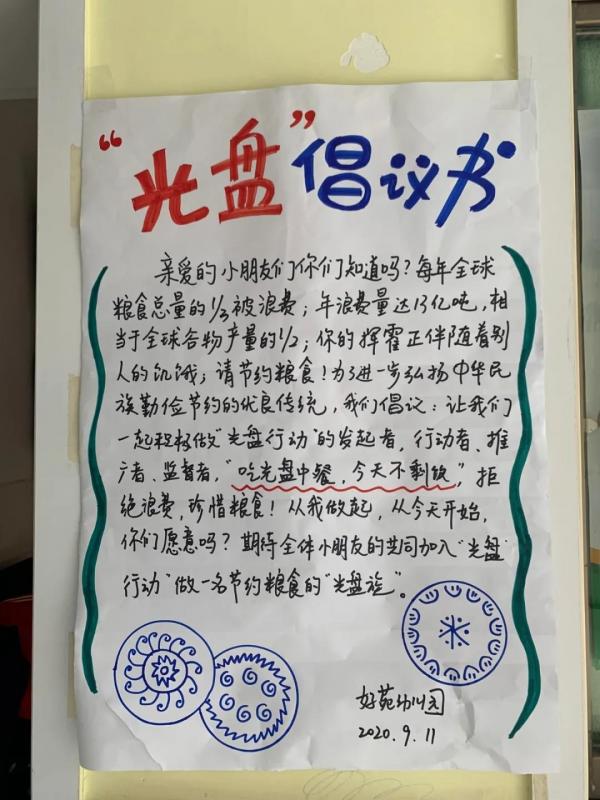 “光盘”倡议书
亲爱的小朋友们你们知道吗？每年全球
粮食总量的1/3被浪费；年浪费量达13亿吨，相
当于全球谷物产量的1/2；你的挥霍正伴随着别
人的饥饿；请节约粮食！为了进一步弘扬中华民
族勤俭节约的优良传统，我们倡议：让我们
一起积极做“光盘行动”的发起者，行动者、推
广者、监督者，“吃光盘中餐，今天不剩饭”，拒
绝浪费，珍惜粮食！从我做起，从今天开始，
你们愿意吗？期待全体小朋友的共同加入“光盘
行动”做一名节约粮食的“光盘族”。
好苑幼儿园
2020.9.11